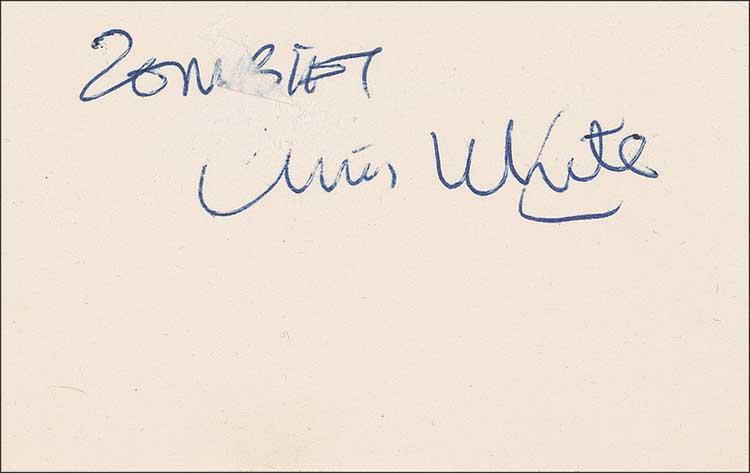 ZOMBIES
Chris White